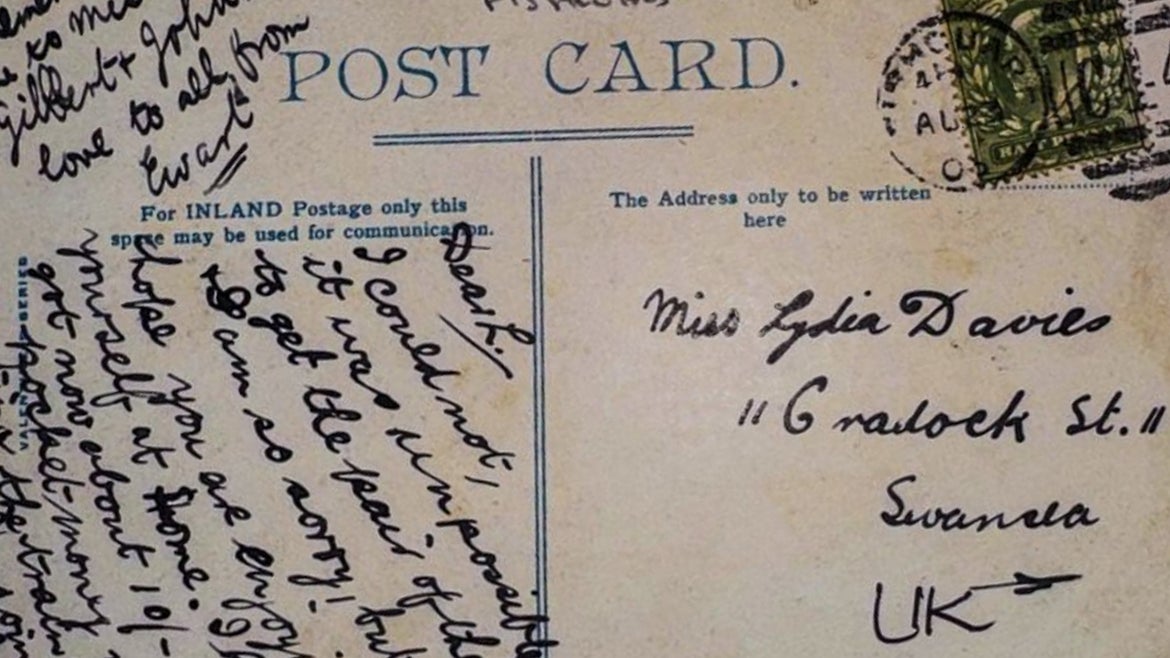 to
Gilbert + John
love to all from
Ewart
POST CARD.
For INLAND Postage only this
space may be used for communication.
The Address only to be written
here
HALF
AU
Dear L.
I could not,
it was unpossible
to get the pair of the
I am so sorry! but
I hope you are enjoy
yourself at Home. I
got now about 10/-
pocket-money
in the train
Miss Lydia Davies
"Cradock St."
Swansea
UK